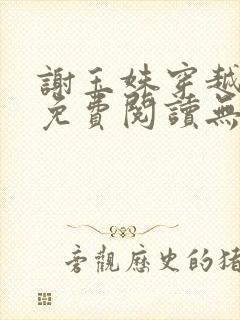 謝玉妹穿越
免費閱讀無
旁觀歷史的猪